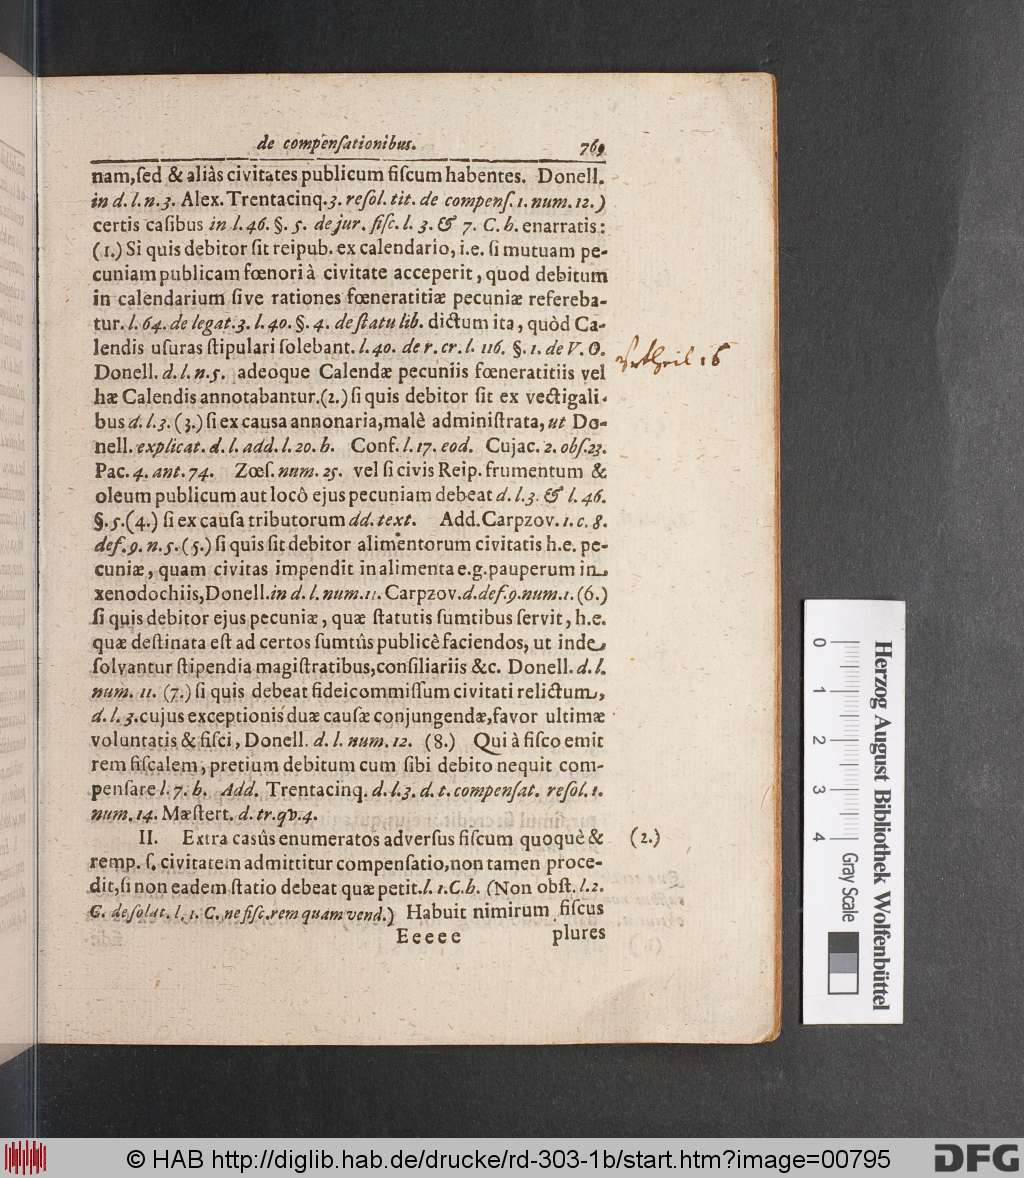 de compenſationibus. 769
nam, ſed & aliàs civitates publicum fiſcum habentes. Donell.
in d. l. n. 3. Alex. Trentacinq. 3. reſol. tit. de compenſ. 1. num. 12.)
certis caſibus in l. 46. §. 5. de jur. fiſc. l. 3. & 7. C. h. enarratis:
(1.) Si quis debitor ſit reipub. ex calendario, i.e. ſi mutuam pe-
cuniam publicam fœnori à civitate acceperit, quod debitum
in calendarium ſive rationes fœneratitiæ pecuniæ refereba-
tur. l. 64. de legat. 3. l. 40. §. 4. de ſtatu lib. dictum ita, quòd Ca-
lendis uſuras ſtipulari ſolebant. l. 40. de r. cr. l. 116. §. 1. de V. O.
Donell. d. l. n. 5. adeoque Calendæ pecuniis fœneratitiis vel
hæ Calendis annotabantur. (2.) ſi quis debitor ſit ex vectigali-
bus d. l. 3. (3.) ſi ex cauſa annonaria, malè adminiſtrata, ut Do-
nell. explicat. d. l. add. l. 20. h. Conf. l. 17. eod. Cujac. 2. obſ. 23.
Pac. 4. ant. 74. Zœſ. num. 25. vel ſi civis Reip. frumentum &
oleum publicum aut locô ejus pecuniam debeat d. l. 3. & l. 46.
§. 5. (4.) ſi ex cauſa tributorum dd. text. Add. Carpzov. 1. c. 8.
def. 9. n. 5. (5.) ſi quis ſit debitor alimentorum civitatis h.e. pe-
cuniæ, quam civitas impendit in alimenta e.g. pauperum in
xenodochiis, Donell. in d. l. num. 11. Carpzov. d. def. 9. num. 1. (6.)
ſi quis debitor ejus pecuniæ, quæ ſtatutis ſumtibus ſervit, h.e.
quæ deſtinata eſt ad certos ſumtûs publicè faciendos, ut inde
ſolvantur ſtipendia magiſtratibus, conſiliariis &c. Donell. d. l.
num. 11. (7.) ſi quis debeat fideicommiſſum civitati relictum,
d. l. 3. cujus exceptionis duæ cauſæ conjungendæ, favor ultimæ
voluntatis & fiſci, Donell. d. l. num. 12. (8.) Qui à fiſco emit
rem fiſcalem, pretium debitum cum ſibi debito nequit com-
penſare l. 7. h. Add. Trentacinq. d. l. 3. d. t. compenſat. reſol. 1.
num. 14. Mæſtert. d. tr. qv. 4.
II. Extra caſûs enumeratos adverſus fiſcum quoquè & (2.)
remp. ſ. civitatem admittitur compenſatio, non tamen proce-
dit, ſi non eadem ſtatio debeat quæ petit. l. 1. C. h. (Non obſt. l. 2.
C. de ſolat. l. 1. C. ne fiſc. rem quam vend.) Habuit nimirum fiſcus
Eeeee plures
Vrtheil 16
Herzog August Bibliothek Wolfenbüttel
0 1 2 3 4 Gray Scale
© HAB http://diglib.hab.de/drucke/rd-303-1b/start.htm?image=00795
DFG